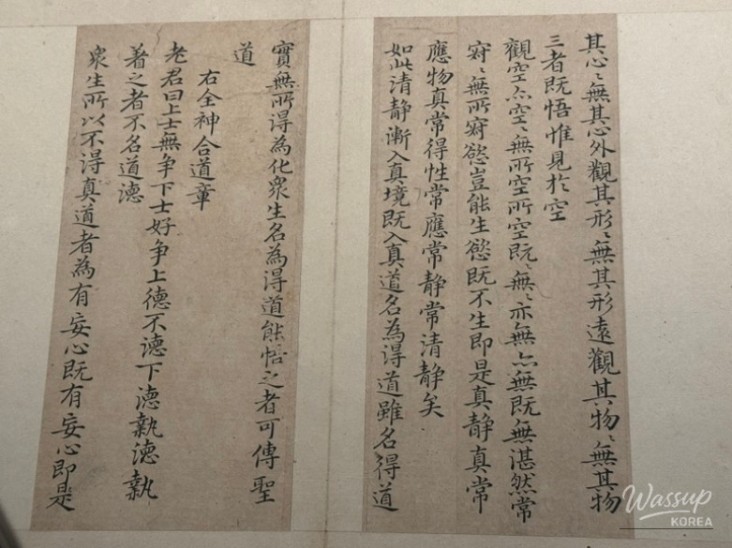 其心〻無其心外觀其形〻無其形遠觀其物〻無其物
三者既悟惟見於空
觀空亦空〻無所空所空既〻無〻亦無亦無既無湛然常
寂〻無所寂慾豈能生慾既不生即是真静真常
應物真常得性常應常静常清静矣
如此清静漸入真境既入真道名為得道雖名得道
實無所得為化衆生名為得道能悟之者可傳聖
道
右全神合道章
老君曰上士無争下士好争上德不德下德執德執
著之者不名道德
衆生所以不得真道者為有妄心既有妄心即是
Wassup
KOREA